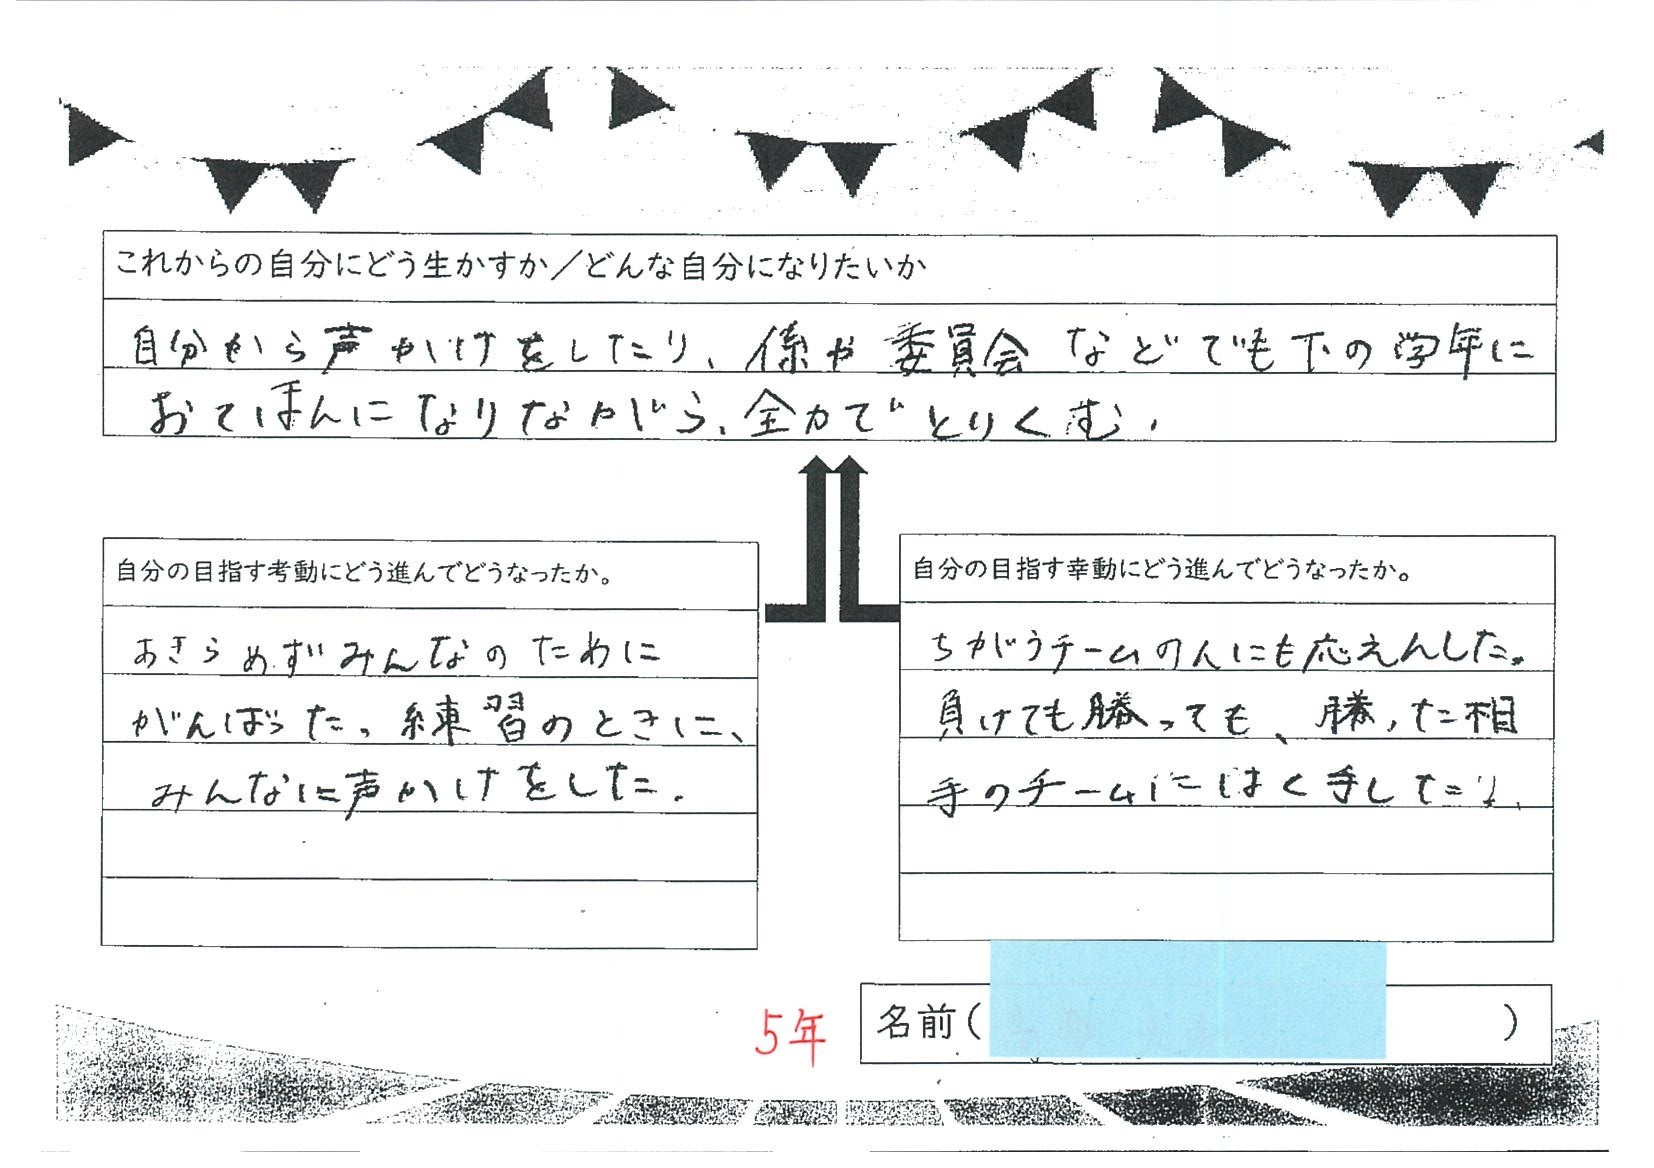 これからの自分にどう生かすか／どんな自分になりたいか
自分から声かけをしたり、係や委員会などでも下の学年に
おてほんになりながら、全力でとりくむ。
自分の目指す考動にどう進んでどうなったか。
あきらめずみんなのために
がんばった。練習のときに、
みんなに声かけをした。
自分の目指す幸動にどう進んでどうなったか。
ちがうチームの人にも応えんした。
負けても勝っても、勝った相
手のチームにはく手したり、
5年
名前( )